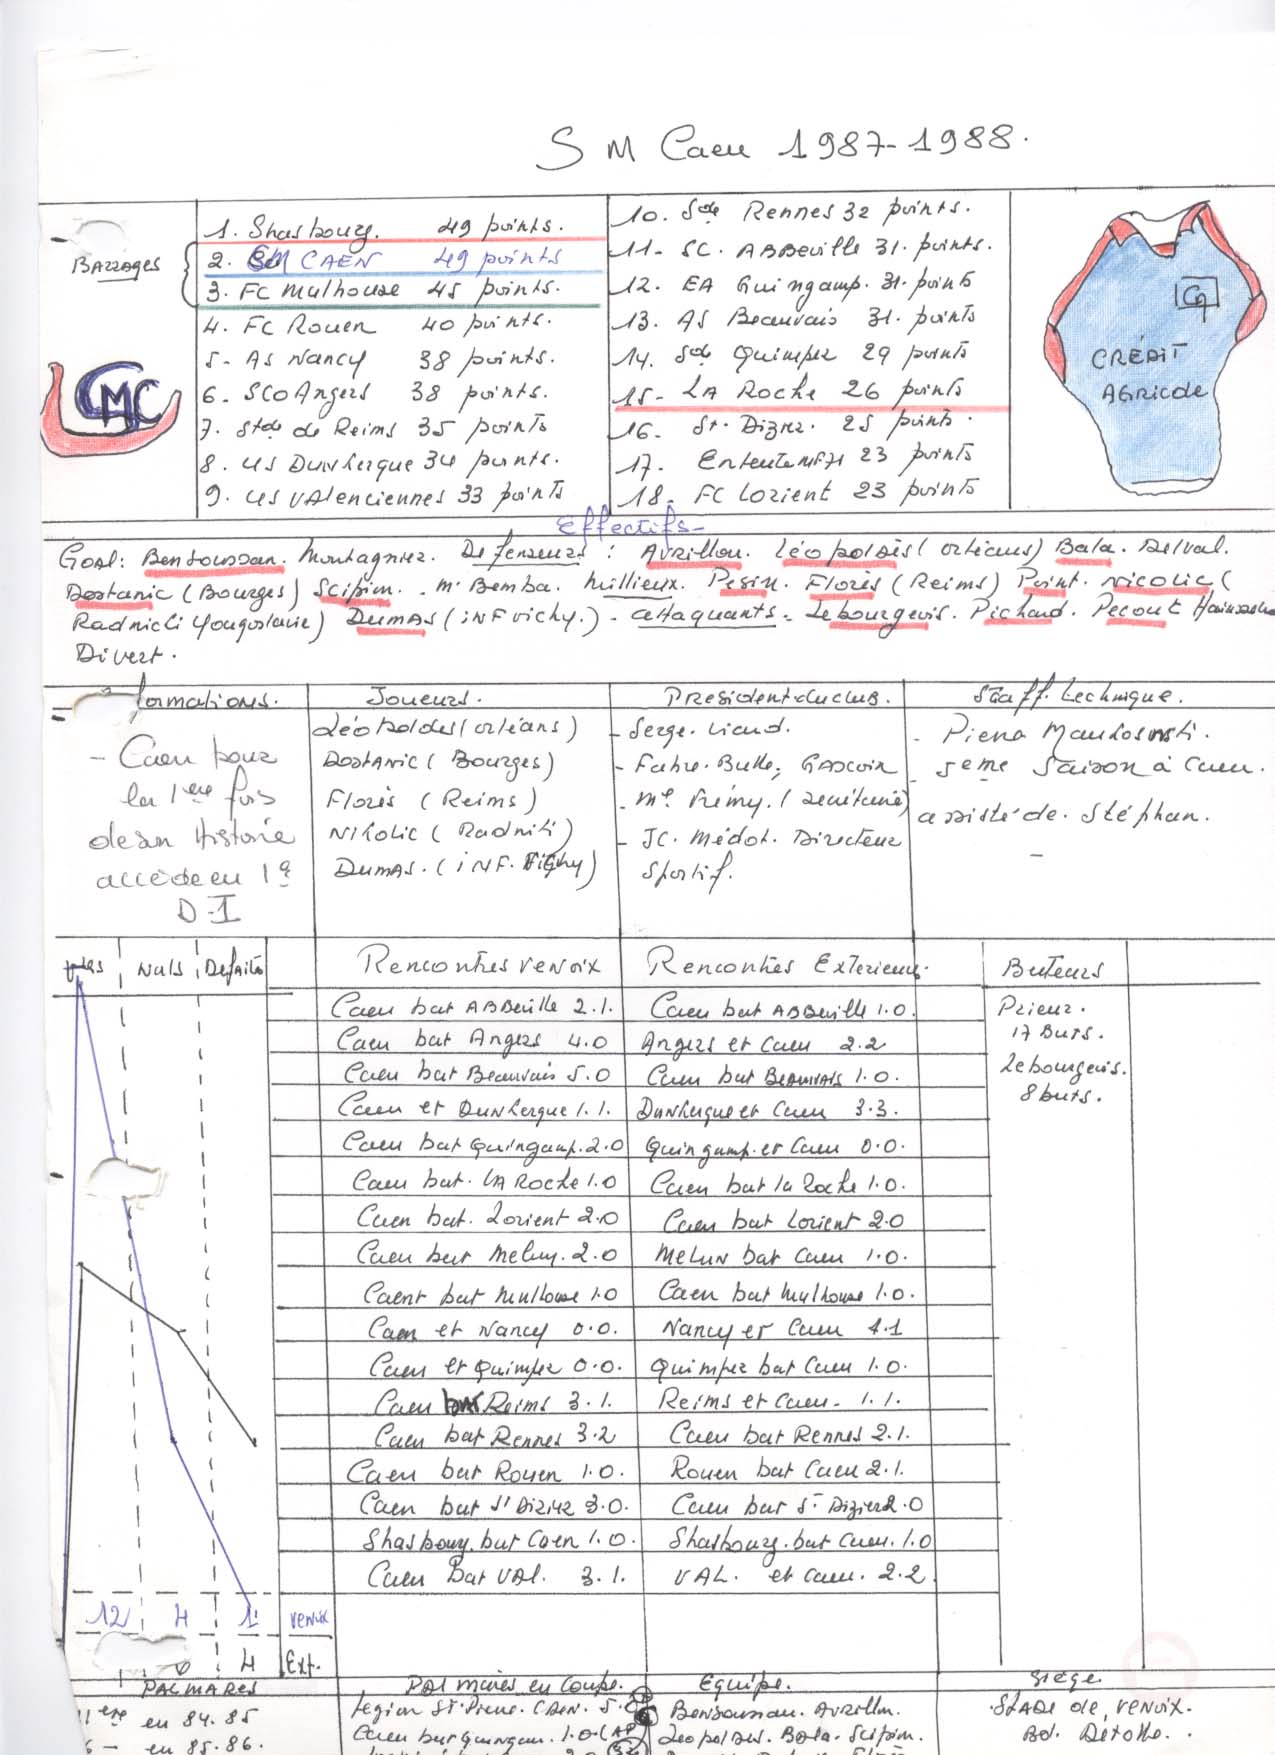 S M Caen 1987-1988.
Barrages
1. Strasbourg. 49 points.
2. SM CAEN 49 points
3. FC Mulhouse 45 points.
4. FC Rouen 40 points.
5- AS Nancy 38 points.
6- SCO Angers 38 points.
7. Stde de Reims 35 points
8. US Dunkerque 34 points.
9. US VAlenciennes 33 points
10. Sde Rennes 32 points.
11- SC. ABBeville 31. points.
12. EA Guingamp. 31. points
13. AS Beauvais 31. points
14. Sde Quimper 29 points
15- LA Roche 26 points
16- St. Dizier. 25 points.
17. Entente MF77 23 points
18- FC Lorient 23 points
SMC
CRÉDIT
AGRICOLE
Effectifs-
Goal: Bensoussan. Montagnier. Défenseurs: Avrillon. Léopoldès (Orléans) Bala. Delval.
Dostanic (Bourges) Scipion. - M'Bemba. Millieux. Pesin. Florès (Reims) Point. Nicolic (
Radnicki Yougoslavie) Dumas (iNF Vichy.) - attaquants - Lebourgeois. Pichard. Pecout
Divert.
formations.
- Caen pour
la 1ere fois
de son Histoire
accède en
D-I
Joueurs.
Léopoldes (orléans)
Dostanic (Bourges)
Florès (Reims)
Nikolic (Radniti)
Dumas. (iNF. Vichy)
President-du club.
- Serge. Liard.
- Fabre. Bulle; Gascoin
- Me Frémy. (secrétaire)
- JC. Médot. Directeur
Sportif.
Staff. technique.
- Pierre Mankowski.
- 5eme Saison à Caen.
assisté de. Stéphan.
-
Nuls Defaites
Rencontres Venoix
Caen bat ABBeville 2.1.
Caen bat Angers 4.0
Caen bat Beauvais 5.0
Caen et Dunkerque 1.1.
Caen bat Guingamp. 2.0
Caen bat. LA Roche 1.0
Caen bat. Lorient 2.0
Caen bat Melun. 2.0
Caent bat Mulhouse 1.0
Caen et Nancy 0.0.
Caen et Quimper 0.0.
Caen bat Reims 3.1.
Caen bat Rennes 3.2
Caen bat Rouen 1.0.
Caen bat St Dizier 3.0.
Strasbourg. bat Caen 1.0.
Caen bat VAl. 3.1.
Rencontres Exterieur.
Caen bat ABBeville 1.0.
Angers et Caen 2.2
Caen bat Beauvais 1.0.
Dunkerque et Caen 3.3.
Guingamp. et Caen 0.0.
Caen bat la Roche 1.0.
Caen bat Lorient 2.0
Melun bat Caen 1.0.
Caen bat Mulhouse 1.0.
Nancy et Caen 1.1
Quimper bat Caen 1.0.
Reims et Caen - 1.1.
Caen bat Rennes 2.1.
Rouen bat Caen 2.1.
Caen bat St Dizier 2.0
Strasbourg. bat Caen. 1.0
VAL. et Caen. 2.2
Buteurs
Prieur.
17 Buts.
Lebourgeois.
8 buts.
12 4 1 Venoix
4 Ext.
PALMARES
en 84.85
en 85.86.
Palmarès en Coupe.
Legion St Pierre. CAEN. 5.
Caen bat Guingam. 1.0 (AP
Equipe.
Bensoussan. Avrillon.
Leopoldes. Bala. Scipion.
Siège.
STADE de, Venoix.
Bd. Detolle.